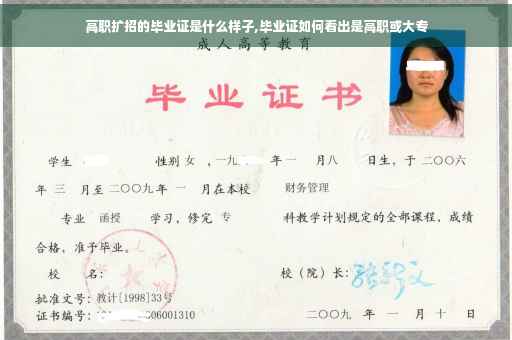 高职扩招的毕业证是什么样子,毕业证如何看出是高职或大专
成人高等教育
毕业证书
学生 性别 女 ,一九 年一 月八 日生,于二〇〇六
年 三 月至二〇〇九年 一 月在本校 财务管理
专业 函授 学习,修完 专 科教学计划规定的全部课程,成绩
合格,准予毕业。
校 名: 校(院)长:
批准文号:教计[1998]33号
证书编号: 06001310 二〇〇九 年 一 月 十 日